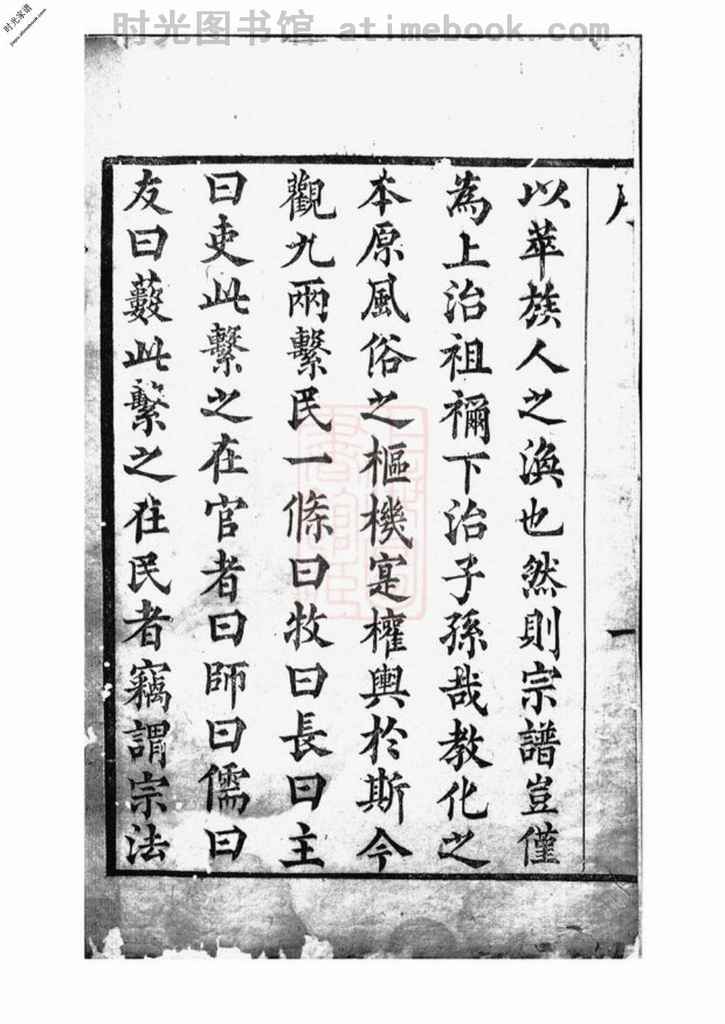 时光图书馆 atimebook.com
时光家谱
以萃族人之渙也然則宗譜豈僅
為上治祖禰下治子孫哉教化之
本原風俗之樞機寔權輿於斯今
觀九兩繫民一條曰牧曰長曰主
曰吏此繫之在官者曰師曰儒曰
友曰藪此繫之在民者竊謂宗法
一